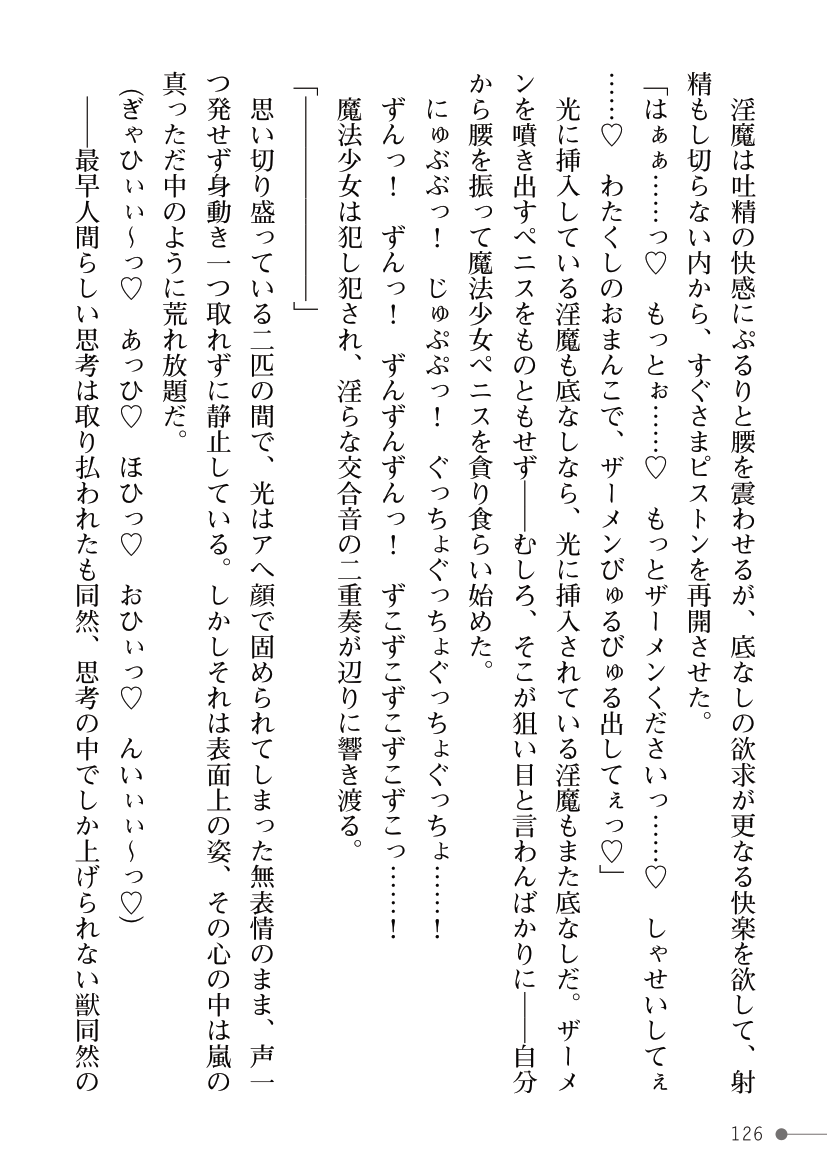 淫魔は吐精の快感にぷるりと腰を震わせるが、底なしの欲求が更なる快楽を欲して、射
精もし切らない内から、すぐさまピストンを再開させた。
「はぁぁ……っ♡　もっとぉ……♡　もっとザーメンくださいっ……♡　しゃせいしてぇ
……♡　わたくしのおまんこで、ザーメンびゅるびゅる出してぇっ♡」
光に挿入している淫魔も底なしなら、光に挿入されている淫魔もまた底なしだ。ザーメ
ンを噴き出すペニスをものともせず――むしろ、そこが狙い目と言わんばかりに――自分
から腰を振って魔法少女ペニスを貪り食らい始めた。
にゅぶぶっ！　じゅぷぷっ！　ぐっちょぐっちょぐっちょぐっちょ……！
ずんっ！　ずんっ！　ずんずんずんっ！　ずこずこずこずこずこっ……！
魔法少女は犯し犯され、淫らな交合音の二重奏が辺りに響き渡る。
「――――――」
思い切り盛っている二匹の間で、光はアヘ顔で固められてしまった無表情のまま、声一
つ発せず身動き一つ取れずに静止している。しかしそれは表面上の姿、その心の中は嵐の
真っただ中のように荒れ放題だ。
（ぎゃひぃぃ～っ♡　あっひ♡　ほひっ♡　おひぃっ♡　んいぃぃ～っ♡）
――最早人間らしい思考は取り払われたも同然、思考の中でしか上げられない獣同然の
126